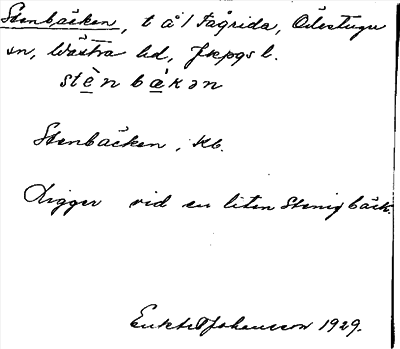 Stenbäcken, t å l Fågrida, Ödestugu
sn, Västra hd, Jkpgs l.
stè̱n bæ̱kən
Stenbäcken, Kb.
Ligger vid en liten stenig bäck.
Johansson 1929.